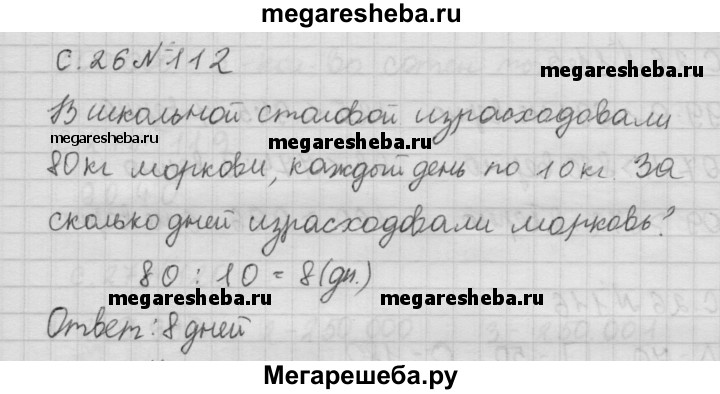 megaresheba.ru
с. 26 № 112
megaresheba.ru
В школьной столовой израсходовали
megaresheba.ru
megaresheba.ru
80 кг моркови, каждый день по 10 кг. За
сколько дней израсходовали морковь?
80 : 10 = 8 (дн.)
megaresheba.ru
megaresheba.ru
Ответ: 8 дней
Мегарешеба.ру